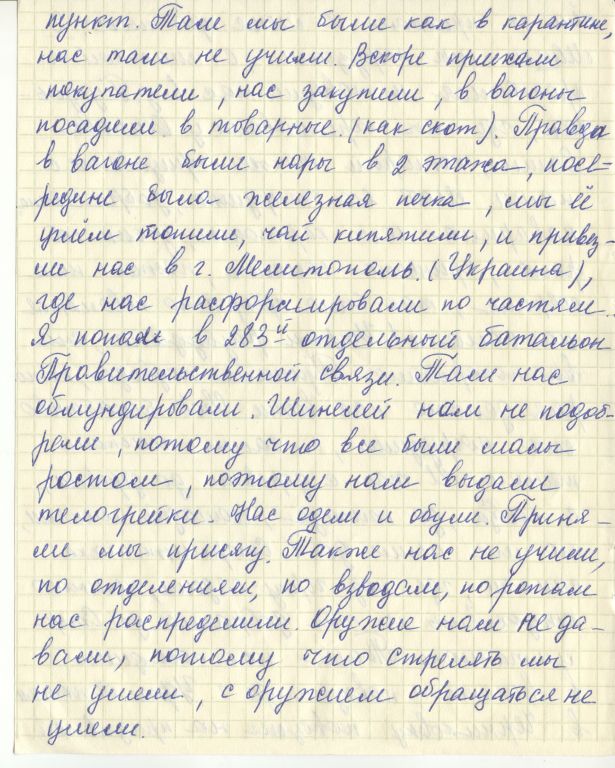 пункт. Там мы были как в карантине,
нас там не учили. Вскоре приехали
покупатели, нас закупили, в вагоны
посадили в товарные (как скот). Правда
в вагоне были нары в 2 этажа, посе-
редине была железная печка, мы её
углём топили, чай кипятили, и привез-
ли нас в г. Мелитополь. (Украина),
где нас расформировали по частям.
Я попал в 283й отдельный батальон
Правительственной связи. Там нас
обмундировали. Шинелей нам не подоб-
рали, потому что все были малы
ростом, поэтому нам выдали
телогрейки. Нас одели и обули. Приня-
ли мы присягу. Также нас не учили,
по отделениям, по взводам, по ротам
нас распределили. Оружие нам не да-
вали, потому что стрелять мы
не умели, с оружием обращаться не
умели.